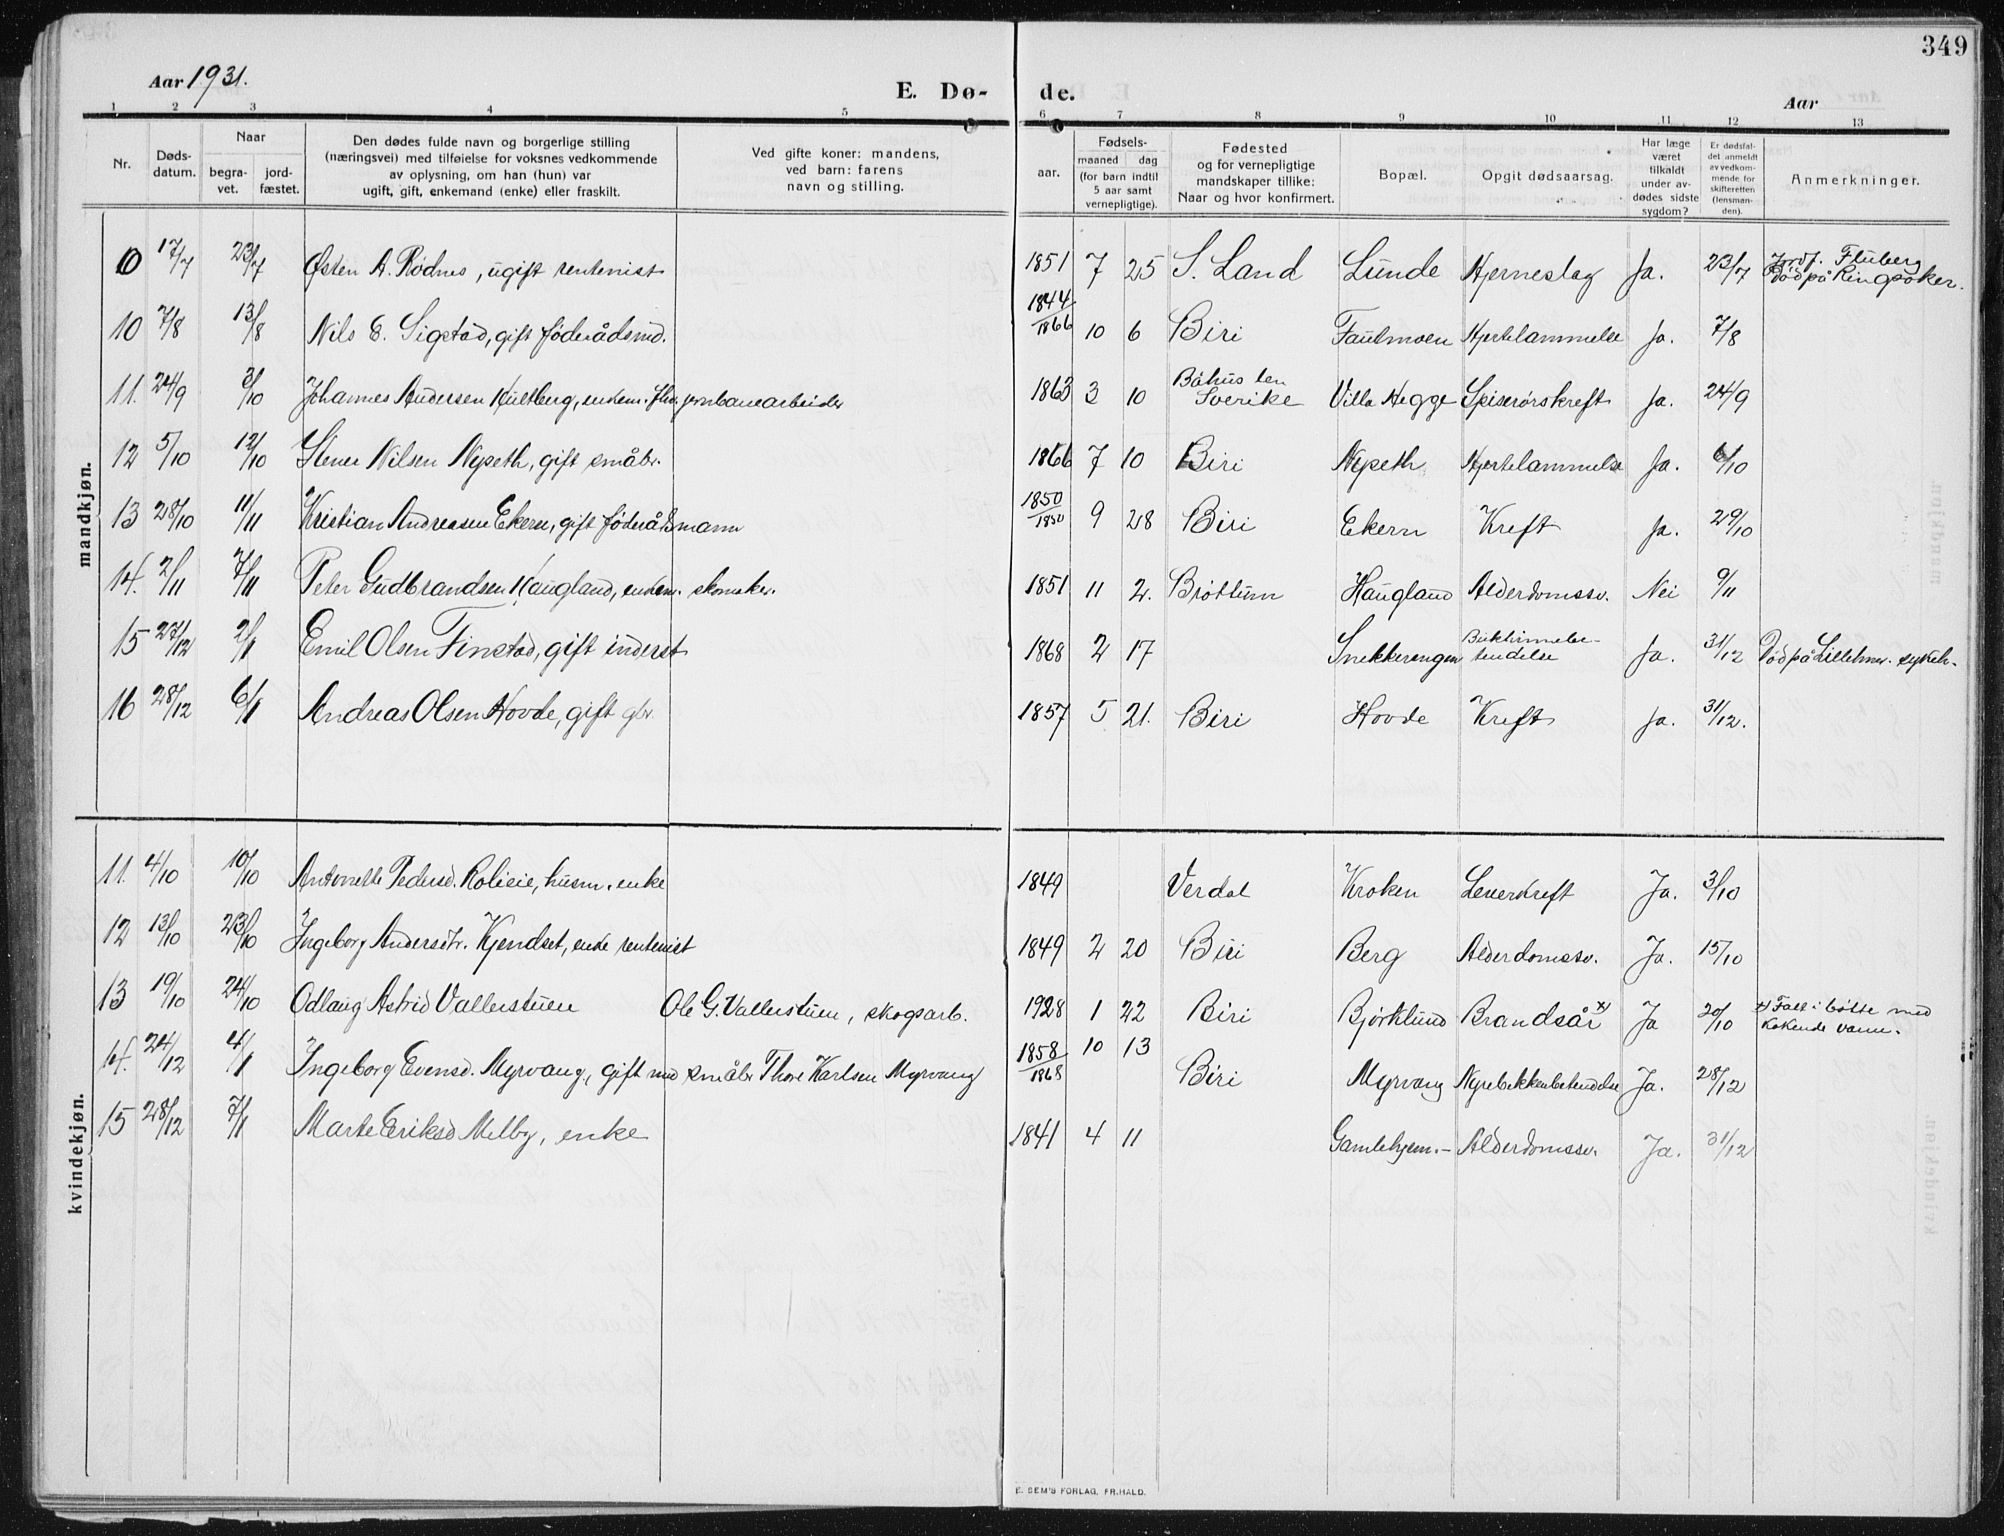 349
Aar 1931.
E. Dø- de.
Aar
1 2 3 4 5 6 7 8 9 10 11 12 13
Nr.
Døds-
datum.
Naar
begra-
vet.
jord-
fæstet.
Den dødes fulde navn og borgerlige stilling
(næringsvei) med tilføielse for voksnes vedkommende
av oplysning, om han (hun) var
ugift, gift, enkemand (enke) eller fraskilt.
Ved gifte koner: mandens,
ved barn: farens
navn og stilling.
aar.
Fødsels-
maaned dag
(for barn indtil
5 aar samt
vernepligtige).
Fødested
og for vernepligtige
mandskaper tillike:
Naar og hvor konfirmert.
Bopæl.
Opgit dødsaarsag.
Har læge
været
tilkaldt
under av-
dødes sidste
sygdom?
Er dødsfal-
det anmeldt
av vedkom-
mende for
skifteretten
(lensman-
den).
Anmerkninger.
mandkjøn.
0 17/7 23/7 Østen A. Rødnes, ugift rentenist 1851 7 25 S. Land Lunde Hjerneslag Ja. 23/7 Jordf. Fluberg
Død på Ringsaker.
10 7/8 13/8 Nils E. Sigstad, gift føderådsmd. 1844/1866 10 6 Biri Fautmoen Hjertelammelse Ja. 7/8
11. 24/9 3/10 Johannes Andersen Hultberg, enkem. fhv. jernbanearbeider 1863 3 10 Båhus len
Sverike Villa Hegge Spiserørskreft Ja. 24/9
12 5/10 12/10 Stener Nilsen Nyseth, gift småbr. 1866 7 10 Biri Nyseth Hjertelammelse Ja. 6/10
13 28/10 11/11 Kristian Andreasen Ekern, gift føderådsmann 1850/1850 9 28 Biri Ekern Kreft Ja. 29/10
14. 2/11 7/11 Peter Gudbrandsen Haugland, enkem. skomaker. 1851 11 2. Brøttum Haugland Alderdomssv. Nei 9/11
15 27/12 2/1 Emil Olsen Finstad, gift inderst 1868 2 17 Snekkerengen Bukhinnebe-
tendelse Ja. 31/12 Død på Lillehmr. sykeh.
16 28/12 6/1 Andreas Olsen Hovde, gift gbr. 1857 5 21. Biri Hovde Kreft Ja. 31/12.
kvindekjøn.
11. 4/10 10/10 Antonette Pedersd. Rolieie, husm. enke 1849 Verdal Kroken Leverkreft Ja. 3/10
12 13/10 23/10 Ingeborg Andersdtr. Kjendset, enke rentenist 1849 2 20 Biri Berg Alderdomssv. Ja. 15/10
13 19/10 24/10 Odlaug Astrid Vallerstuen Ole G. Vallerstuen, skogsarb. 1928 1 22 Biri Bjørklund Brandsår x) Ja 20/10 x) Falt i bøtte med
kokende vann.
14. 24/12 4/1 Ingeborg Evensd. Myrvang, gift med småbr. Thore Karlsen Myrvang 1858/1868 10 13 Biri Myrvang Nyrebekkenbetendelse Ja. 28/12
15 28/12 7/1 Marte Eriksd Melby, enke 1841 4 11 Gamlehjem.- Alderdomssv. Ja. 31/12
E. SEM'S FORLAG, FR.HALD.